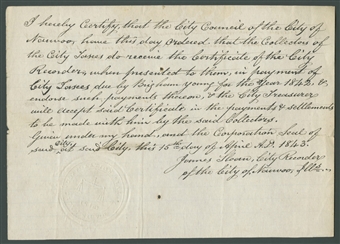 I hereby Certify, that the City Council of the City of
Nauvoo, have this day ordered that the Collectors of
the City Taxes do receive the Certificate of the City
Recorder, when presented to them, in payment of
City Taxes due by Brigham Young for the Year 1842. &
endorse such payments thereon, & the City Treasurer
will accept said Certificate in the payments & settlements
to be made with him by the said Collectors.
Given under my hand, and the Corporation Seal of
said City, this 15th day of April A.D. 1843.
James Sloan, City Recorder
of the City of Nauvoo, Ills.